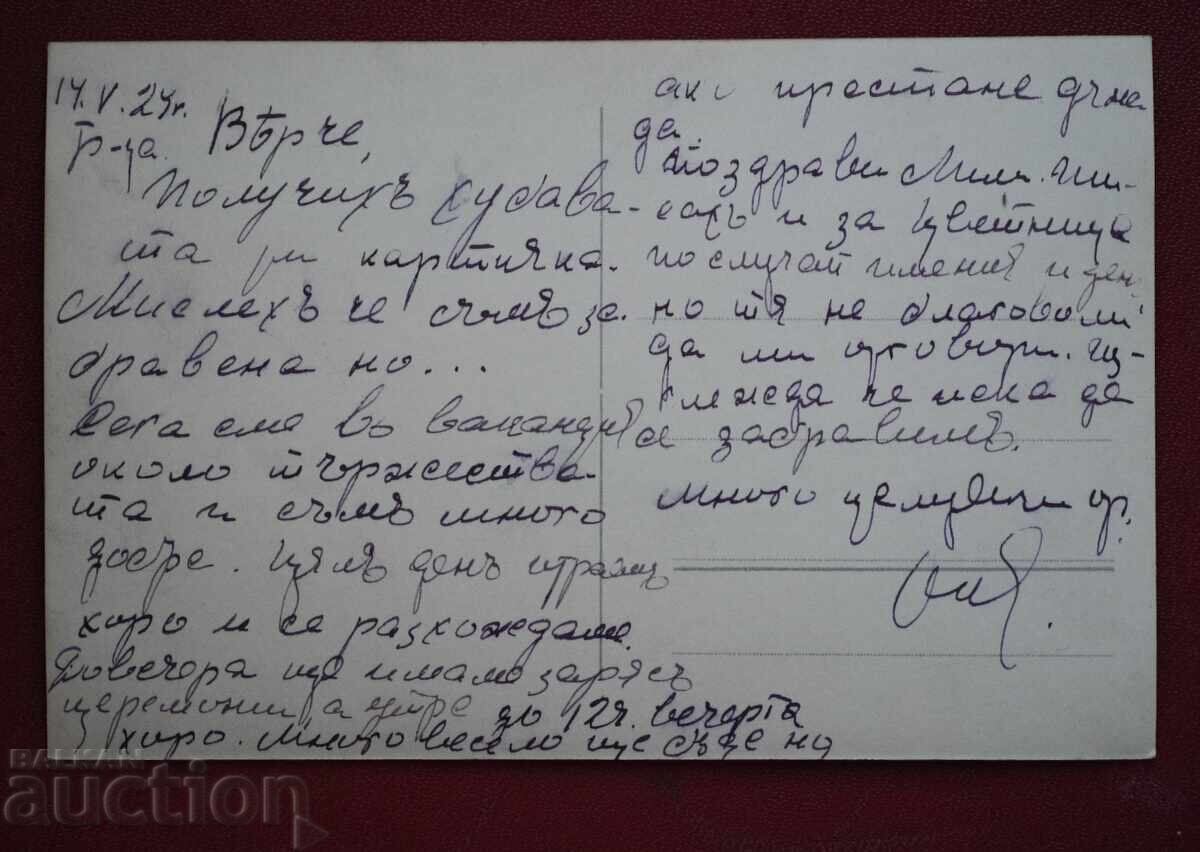 14.V.24г.
Вѣрче,
Получихъ хубава-
та ти картичка.
Мислехъ че съмъ за-
бравена но...
Сега сме въ ваканция
около тържества-
та и съмъ много
добре. Цялъ денъ играемъ
хоро и се разхождаме.
Довечера ще имаме заря съ
церемони а утре до 12ч. вечерта
хоро. Много весело ще бъде но
ако престане дъжда
да.
Поздрави Мими. Пи-
сахъ и за Цветница
по случай имения и ден
но тя не благоволи
да ми отговори. Из-
глежда че иска да
се забравимъ.
Много целувки от
BALKAN
auction